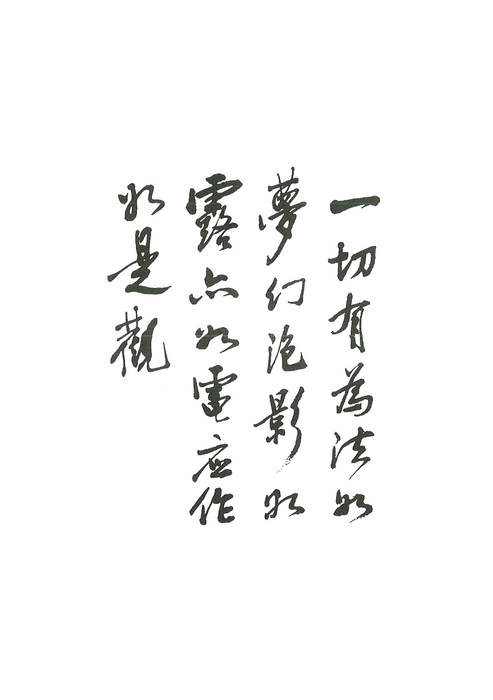 一切有為法如
夢幻泡影如
露亦如電应作
如是觀